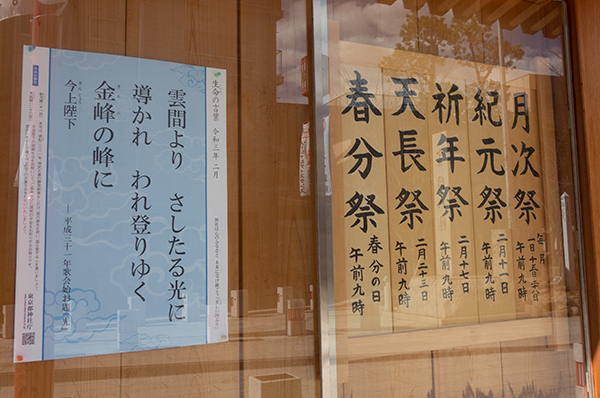 生命の言葉 令和三年二月
雲間より さしたる光に
導かれ われ登りゆく
金峰の峰に
今上陛下
― 平成三十一年歌会始お題『光』
東京都神社庁
月次祭 毎月
午前九時
紀元祭 二月十一日
午前九時
祈年祭 二月十七日
午前九時
天長祭 二月二十三日
午前九時
春分祭 春分の日
午前九時